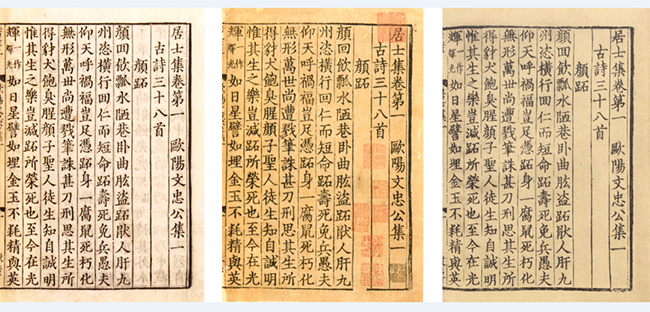 居士集卷第一 歐陽文忠公集一
古詩三十八首
顔跖
顔回飲瓢水陋巷卧曲肱盜跖猒人肝九
州恣橫行回仁而短命跖壽死免兵愚夫
仰天呼禍福豈足憑跖身一腐鼠死朽化
無形萬世尚遭戮筆誅甚刀刑思其生所
得豺犬飽臭腥顔子聖人徒生知自誠明
惟其生之樂豈減跖所榮死也至今在光
輝一作輝光如日星譬如埋金玉不耗精與英
居士集卷第一 歐陽文忠公集一
古詩三十八首
顔跖
顔回飲瓢水陋巷卧曲肱盜跖猒人肝九
州恣橫行回仁而短命跖壽死免兵愚夫
仰天呼禍福豈足憑跖身一腐鼠死朽化
無形萬世尚遭戮筆誅甚刀刑思其生所
得豺犬飽臭腥顔子聖人徒生知自誠明
惟其生之樂豈減跖所榮死也至今在光
輝一作輝光如日星譬如埋金玉不耗精與英
居士集卷第一 歐陽文忠公集一
古詩三十八首
顔跖
顔回飲瓢水陋巷卧曲肱盜跖猒人肝九
州恣橫行回仁而短命跖壽死免兵愚夫
仰天呼禍福豈足憑跖身一腐鼠死朽化
無形萬世尚遭戮筆誅甚刀刑思其生所
得豺犬飽臭腥顔子聖人徒生知自誠明
惟其生之樂豈減跖所榮死也至今在光
輝一作輝光如日星譬如埋金玉不耗精與英